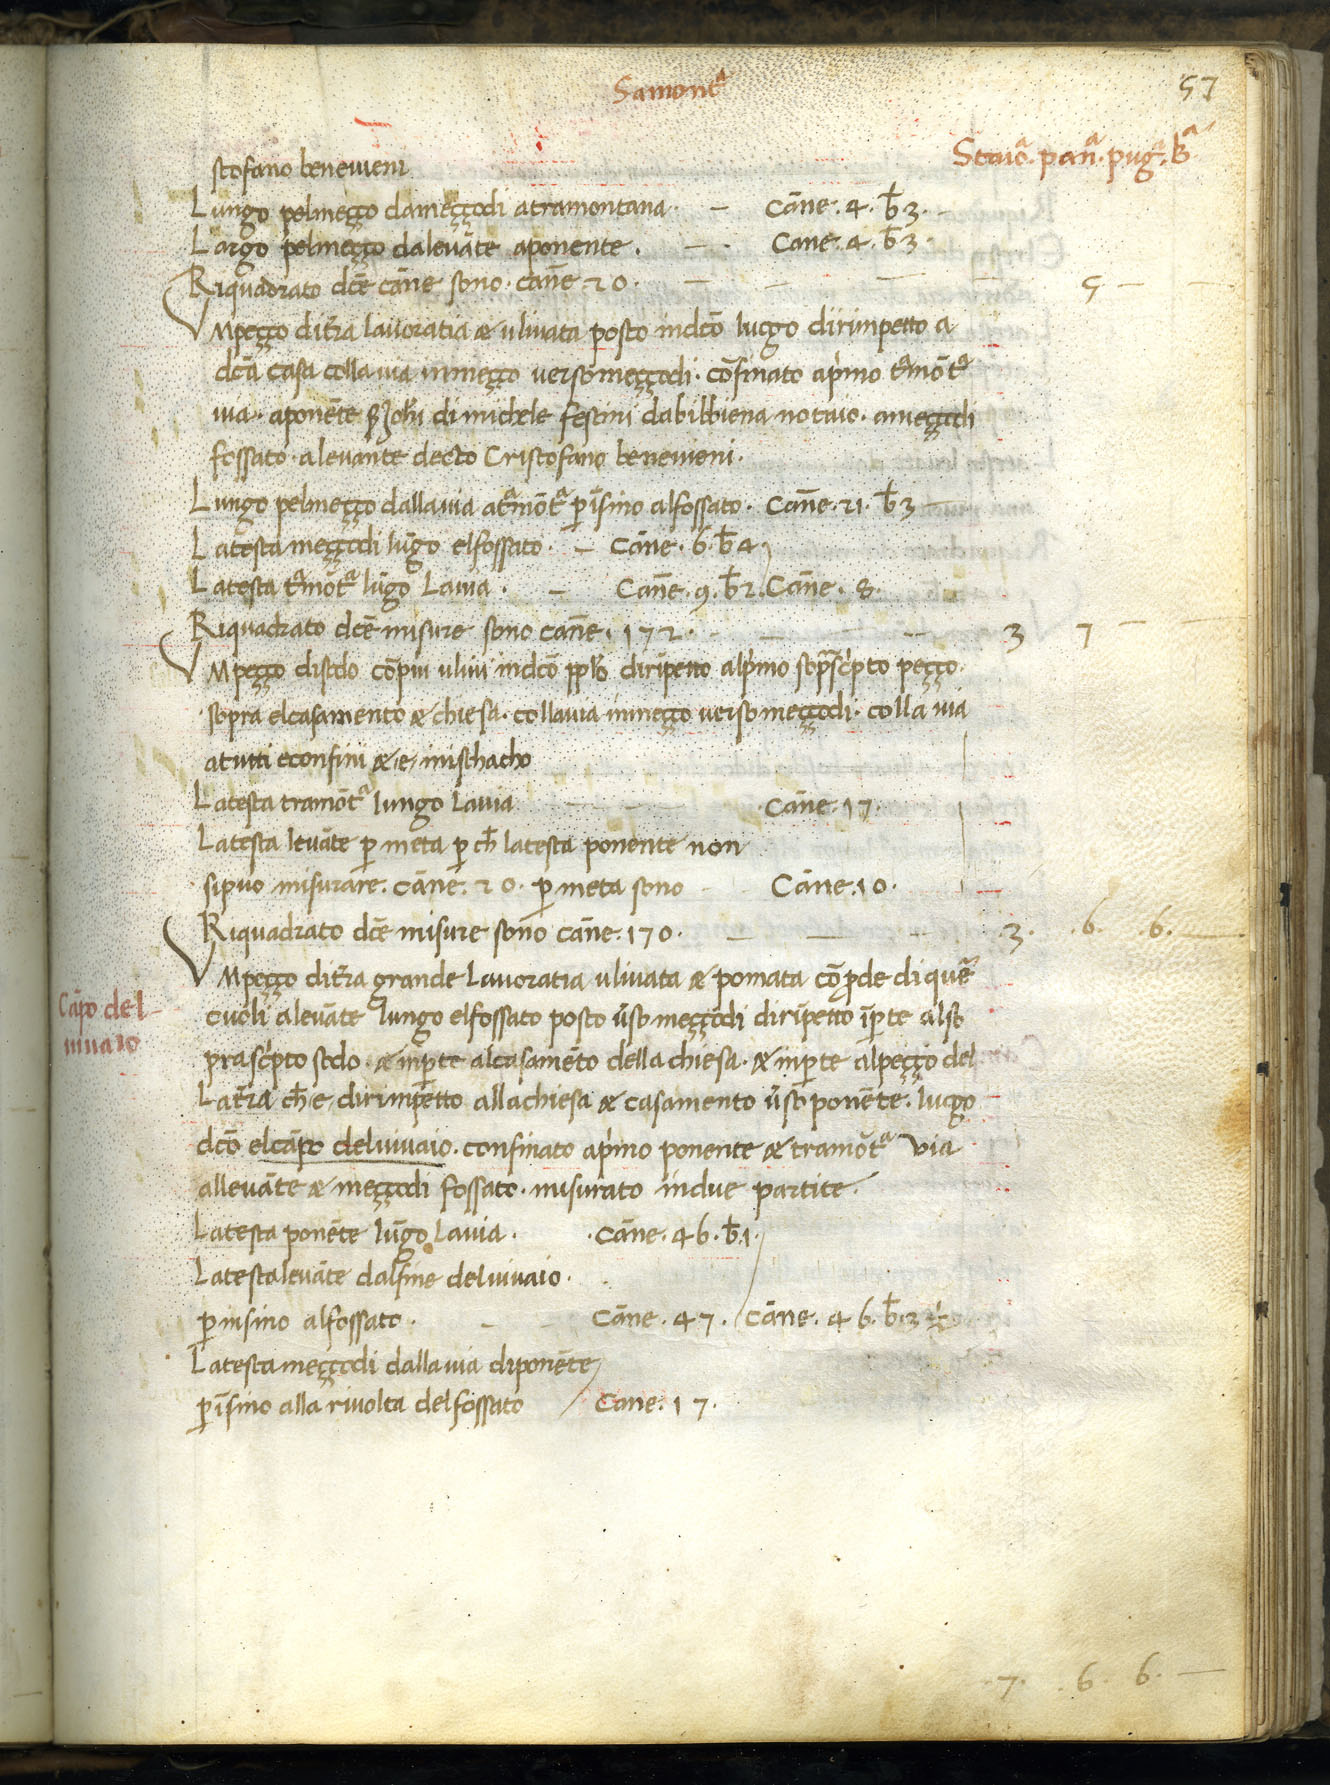 Samont.ª
57
Staioª. panª. pugª. bª
stofano benevieni
Lungo pelmeggo dameggodi atramontana. — Cāne. 4. b̄ 3.
Largo pelmeggo dalevāte aponente. — Cane. 4. b̄ 3
Riquadrato dc̄e cāne sono. can̄e 20. — — — — 5 — —
Vmpeggo dit̄ra lavoratia & ulivata posto indc̄o luogo dirimpetto a
dc̄a casa colla via inmeggo verso meggodi. cōfinato ap̄imo tªmōtª
via. aponēte di michele festini dabibbiena notaio. ameggodi
fossato. alevante decto Cristofano benevieni.
Lungo pelmeggo dallavia atªmōtª p̱īsino alfossato. Can̄e. 21. b̄ 3 —
Latesta meggodi lūgo elfossato. — Cāne. 6. b̄ 4
Latesta tªmōtª lūgo Lavia. — Can̄e. 9. b̄ 2. Can̄e. 8.
Riquadrato dc̄e misure sono can̄e. 172. — — — 3 7 — —
Vmpeggo disodo cōpiu ulivi indc̄o dirīpetto alp̄imo sop̄asc̄ipto peggo.
sopra elcasamento & chiesa. collavia inmeggo verso meggodi. colla via
atutti econfini & e, inischacho
Latesta tramōtª lungo Lavia — — — Cāne. 17.
Latesta levāte p̱ meta p̱ ch̄ latesta ponente non
sipuo misurare. Cāne. 20. p̱ meta sono — Cāne. 10.
Riquadrato dc̄e misure sono cāne. 170. — — — .3. .6. 6. —
Vmpeggo dit̄ra grande Lavoratia ulivata & pomata cōp̄de di que
Cāpo del
vivaio
cuoli alevāte lungo elfossato posto v̄so meggodi dirīpetto īp̱te also
prasc̄ipto sodo. & inp̱te alcasamēto della chiesa. & inp̱te alpeggo del
Lat̄ra ch̄ e, dirimpetto allachiesa & casamento v̄so ponēte. luogo
dc̄o elcāpo delvivaio. confinato ap̄imo ponente & tramōtª via
allevāte & meggodi fossato. misurato indue partite.
Latesta ponēte lūgo Lavia. .Cāne. 46. b̄. 1.
Latestalevāte dalfine delvivaio.
p̱ insino alfossato. — — Cāne. 47. Cāne. 46. b̄. 3
Latesta meggodi dallavia diponēte
p̱īsino alla rivolta delfossato Cane. 17.
.7. .6. 6. —